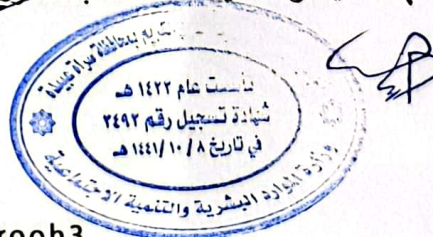 بمحافظة سراة عبيدة
تأسست عام ١٤٢٢ هـ
شهادة تسجيل رقم ٢٤٩٢
في تاريخ ٨ / ١٠ / ١٤٤١ هـ
وزارة الموارد البشرية والتنمية الاجتماعية
rooh3